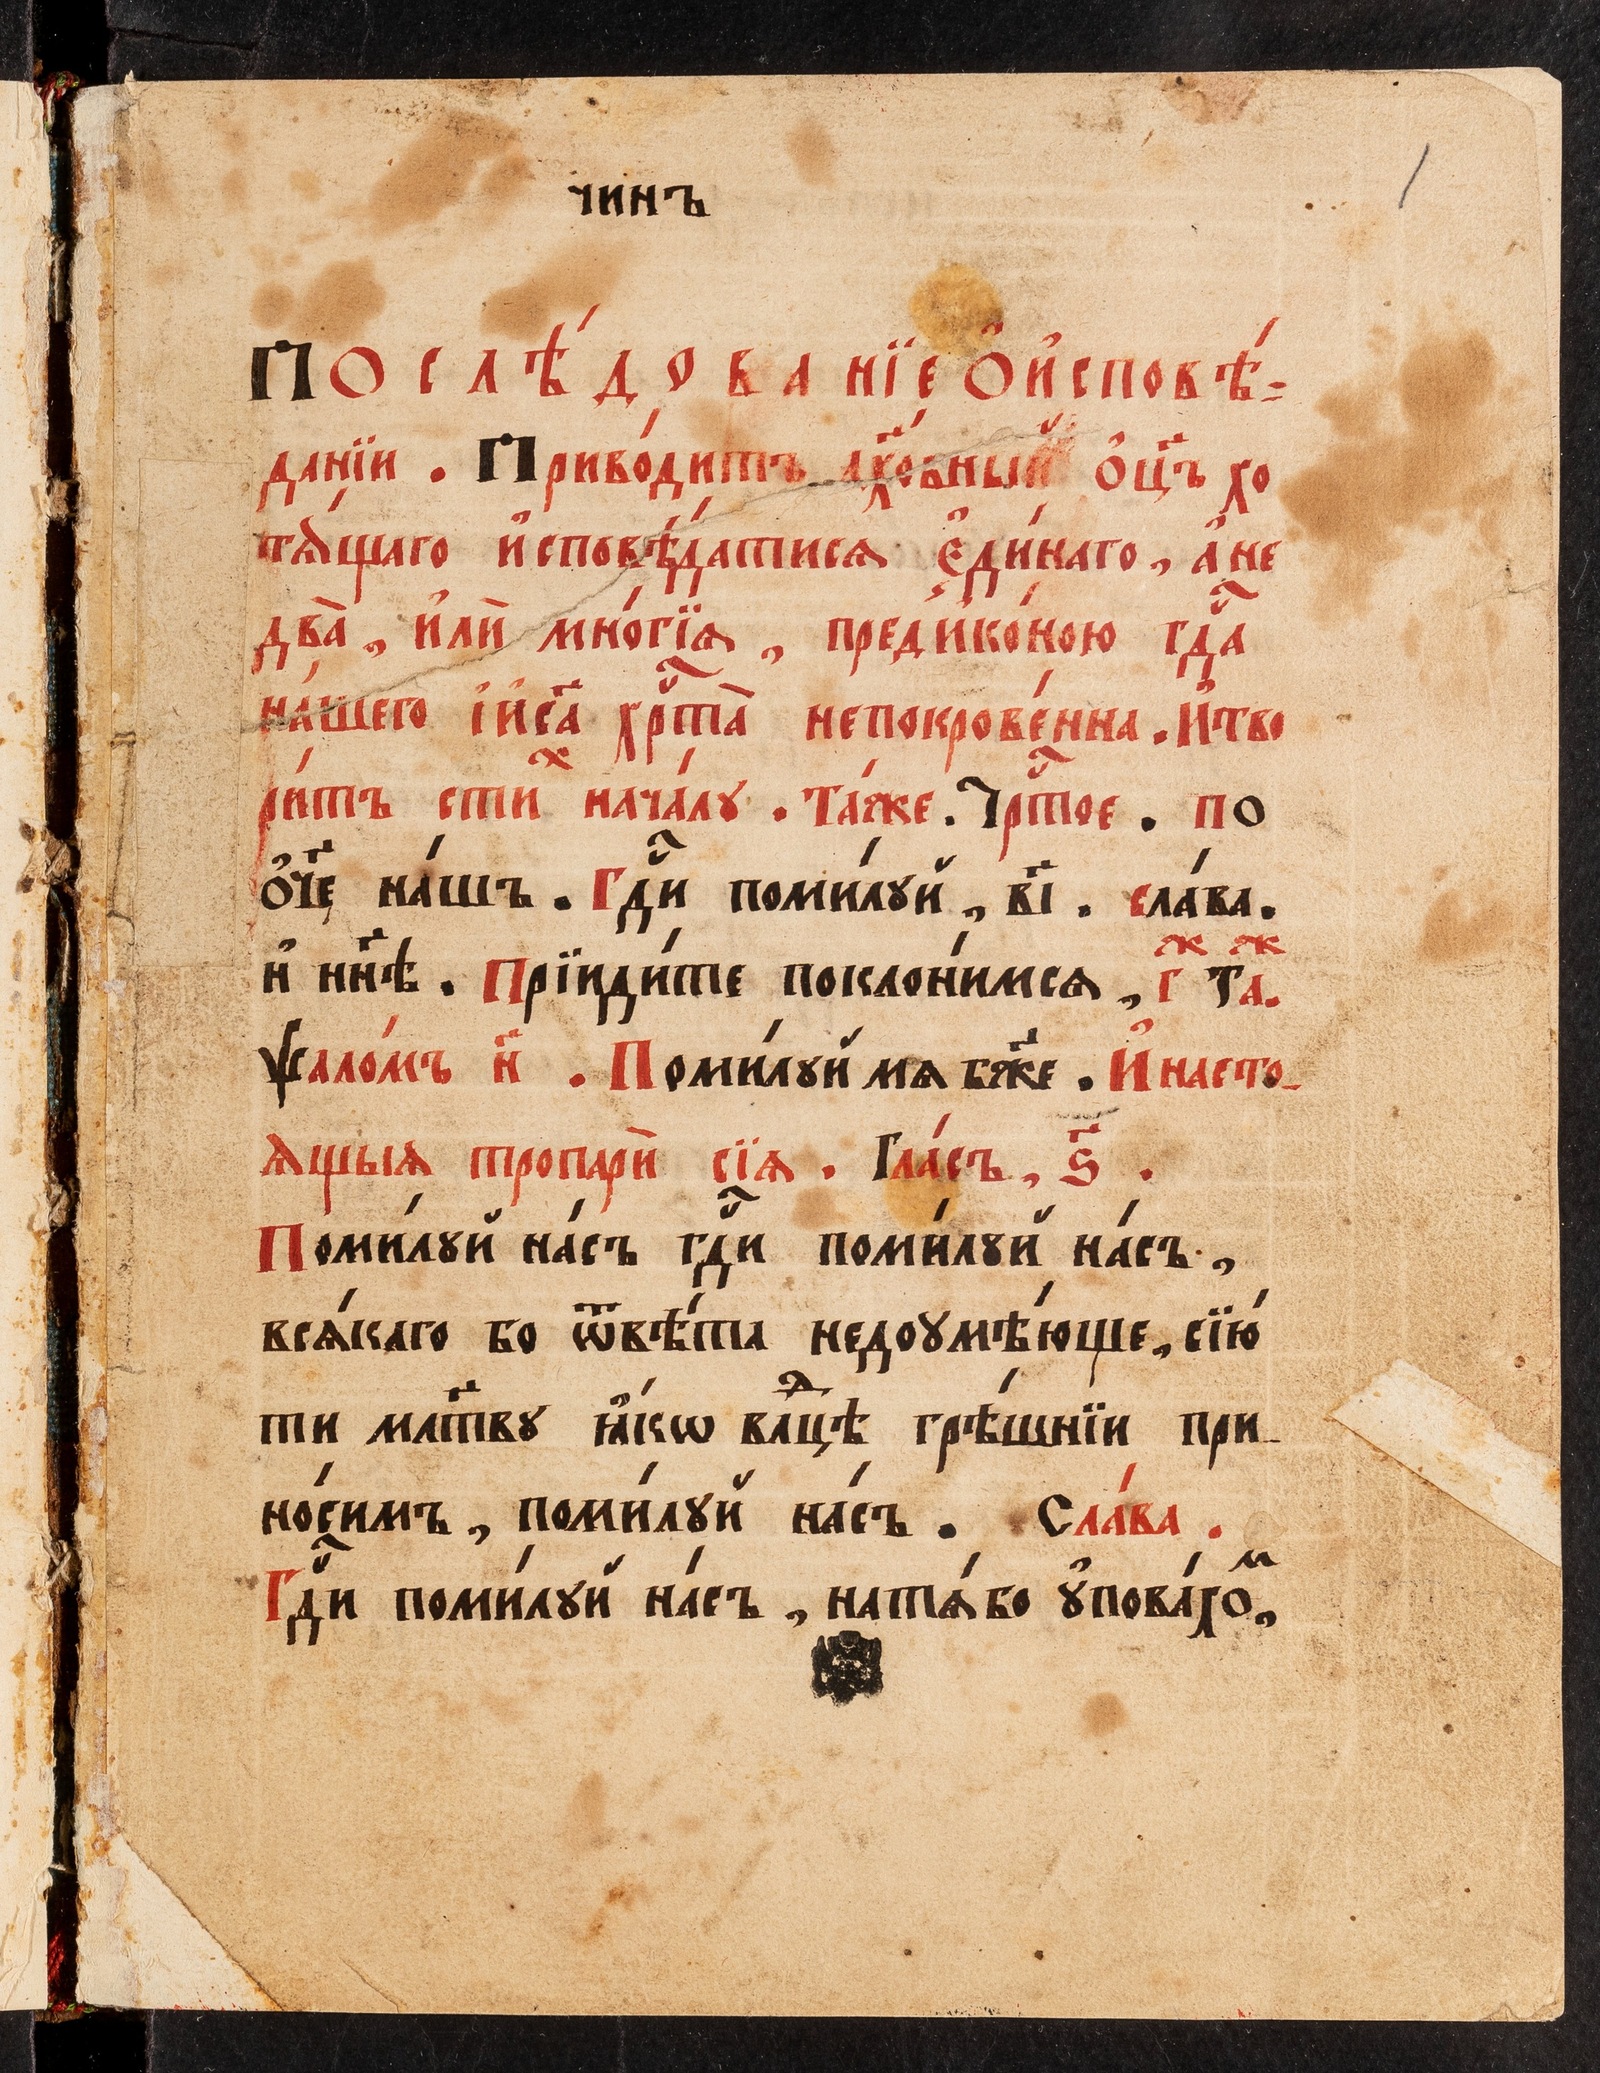 чинъ
1
Послѣ́дованїе ѻ҆ и҆сповѣ́-
данїи . Приво́дитъ дх҃о́вный ѻ҆ц҃ъ хо
тѧ́щаго и҆сповѣ́датисѧ є҆ди́наго, а҆ не
два̀, и҆лѝ мно́гїѧ, пред̾ и҆ко́ною гдⷭ҇а
на́шего і҆и҃са хрⷭ҇та̀ непокрове́нна. И҆ тво
ри́тъ стиⷯ нача́лу . Та́же. Трⷭ҇тое . по
ѻ҆ч҃е на́шъ . Гдⷭ҇и поми́луй, в҃і . сла́ва.
и҆ нн҃ѣ . Прїиди́те поклони́мсѧ, гⷤ Таⷤ.
ѱало́мъ н҃ . Поми́луй мѧ бж҃е . И҆ насто-
ѧщыѧ тропарѝ сїѧ . Гла́съ, ѕ҃ .
Поми́луй на́съ гдⷭ҇и поми́луй на́съ,
всѧ́каго бо ѿвѣ́та недоꙋмѣ́юще, сїю́
ти мл҃тву ꙗ҆́кѡ влⷣцѣ грѣ́шнїи при-
но́симъ, поми́луй на́съ . Сла́ва .
Гдⷭ҇и поми́луй на́съ, на тѧ́ бо ᲂу҆пова́хоⷨ,